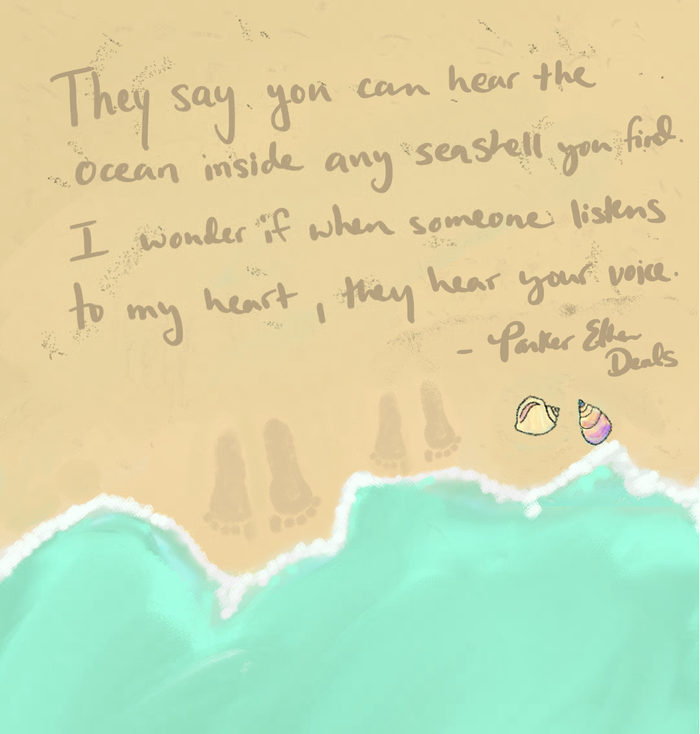 They say you can hear the
ocean inside any seashell you find.
I wonder if when someone listens
to my heart, they hear your voice.
- Parker
Deals